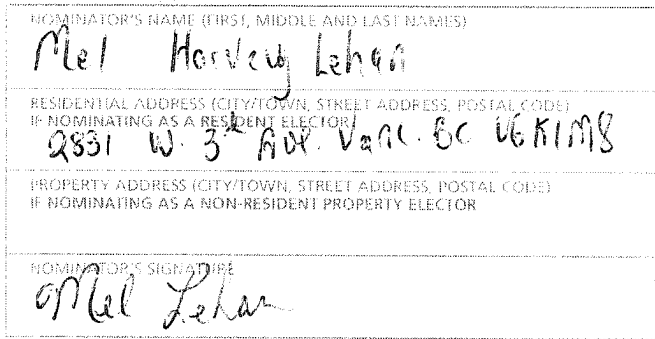 NOMINATOR'S NAME (FIRST, MIDDLE AND LAST NAMES)
Mel Harvey Lehan
RESIDENTIAL ADDRESS (CITY/TOWN, STREET ADDRESS, POSTAL CODE)
IF NOMINATING AS A RESIDENT ELECTOR
2831 W. 3rd Ave. Vanc. BC V6K1M8
PROPERTY ADDRESS (CITY/TOWN, STREET ADDRESS, POSTAL CODE)
IF NOMINATING AS A NON-RESIDENT PROPERTY ELECTOR
NOMINATOR'S SIGNATURE
Mel Lehan